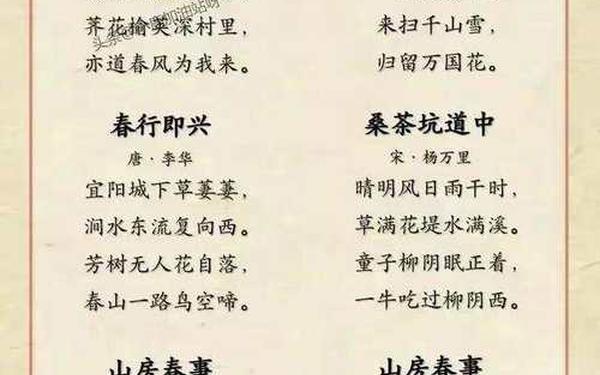 荠花榆荚深村里，
亦道春风为我来。
春行即兴
唐·李华
宜阳城下草萋萋，
涧水东流复向西。
芳树无人花自落，
春山一路鸟空啼。
山房春事
来扫千山雪，
归留万国花。
桑茶坑道中
宋·杨万里
晴明风日雨干时，
草满花堤水满溪。
童子柳阴眠正着，
一牛吃过柳阴西。
山房春事